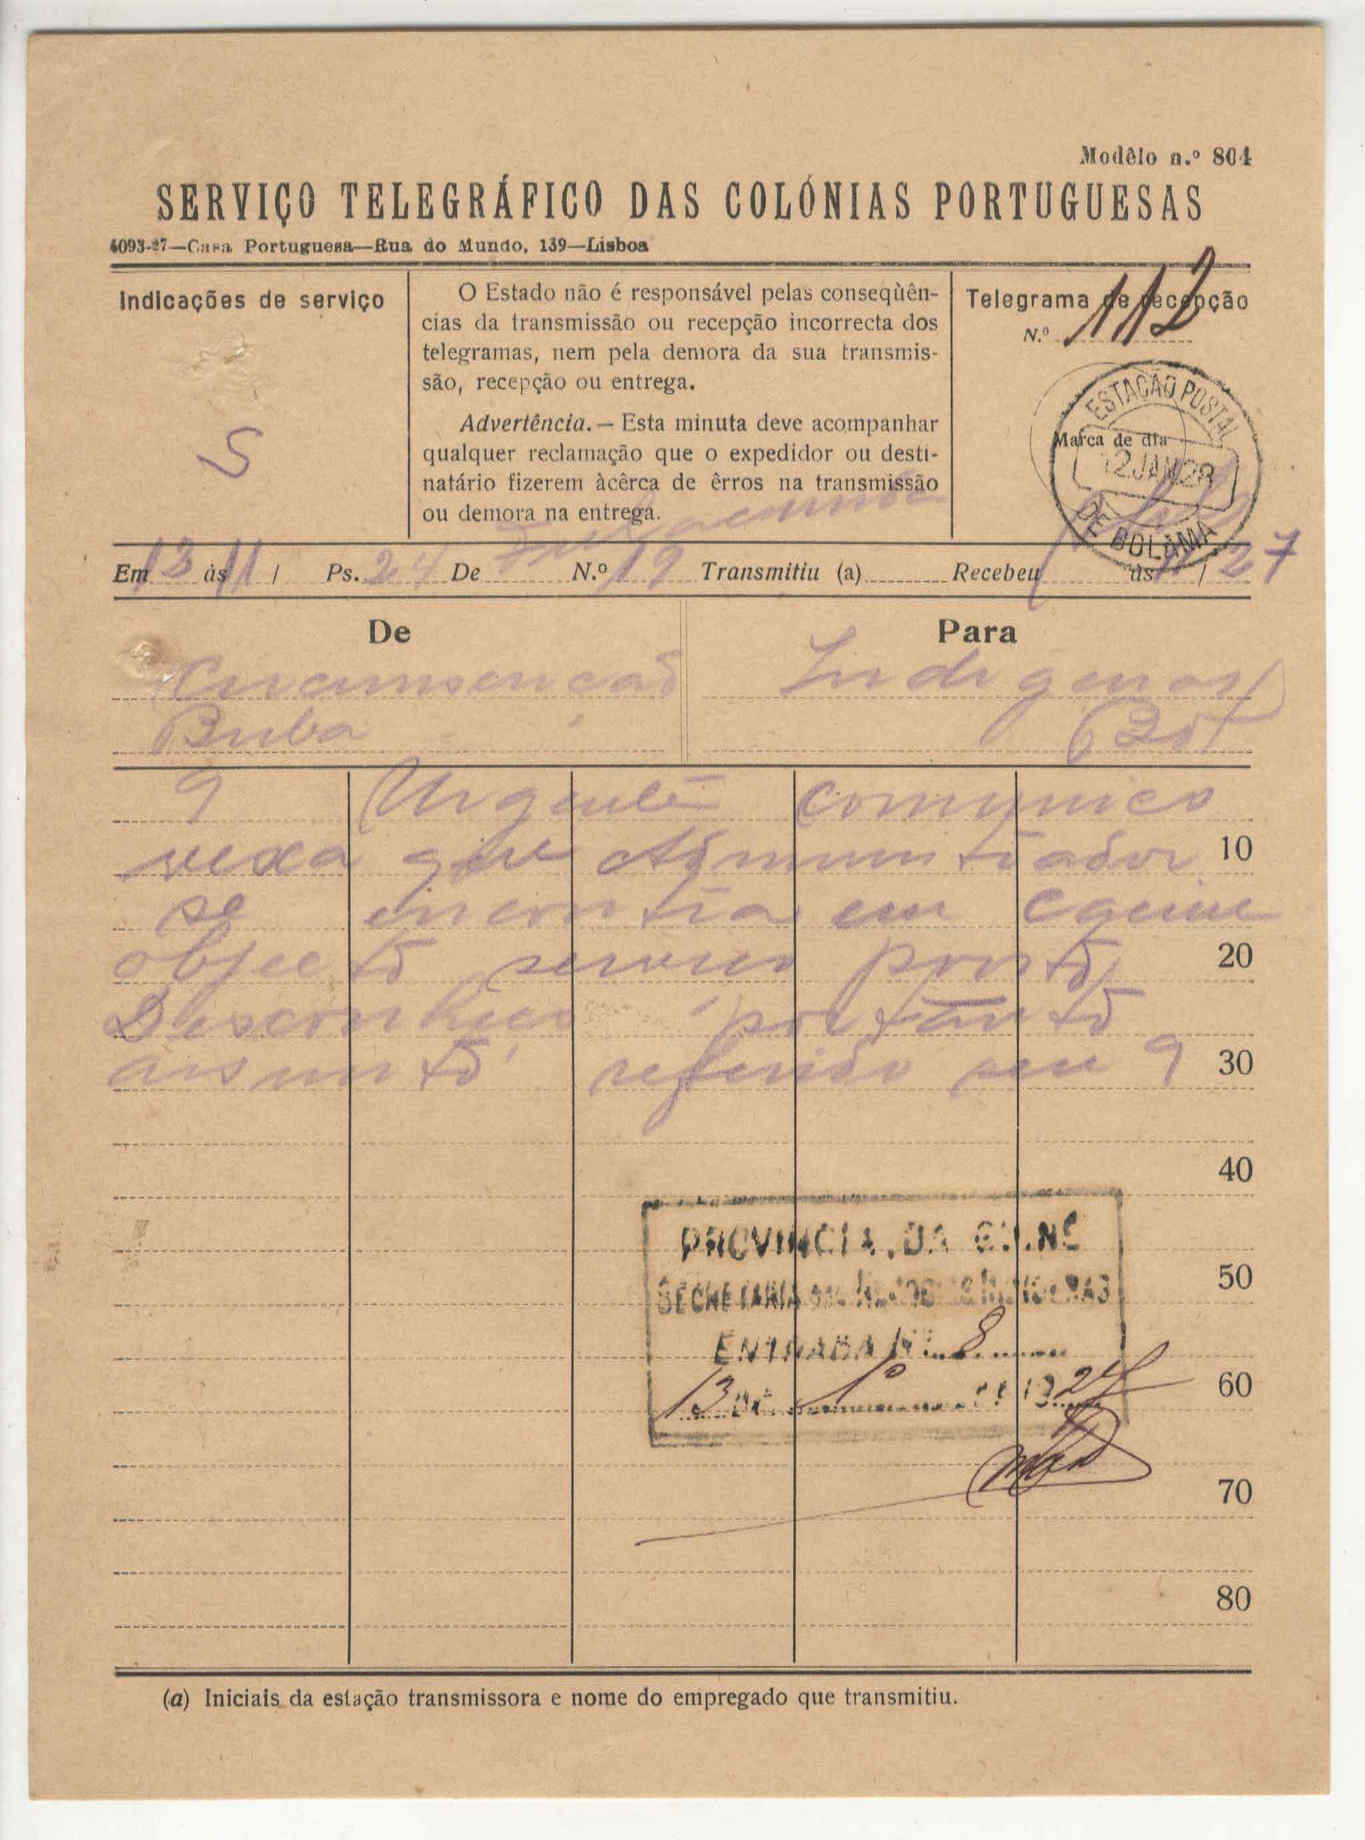 Modêlo n.º 804
SERVIÇO TELEGRÁFICO DAS COLÓNIAS PORTUGUESAS
4093-27—Casa Portuguesa—Rua do Mundo, 139—Lisboa
Indicações de serviço
S
O Estado não é responsável pelas conseqüên-
cias da transmissão ou recepção incorrecta dos
telegramas, nem pela demora da sua transmis-
são, recepção ou entrega.
Advertência. — Esta minuta deve acompanhar
qualquer reclamação que o expedidor ou desti-
natário fizerem àcêrca de êrros na transmissão
ou demora na entrega.
Telegrama de recepção
N.º 112
ESTAÇÃO POSTAL
Marca de dia
12 JAN 28
DE BOLAMA
Em 13 às 11 / Ps. 24 De N.º 19 Transmitiu (a) Recebeu às 11 / 27
De
Para
Circunscrição
Buba
Indigenas
Bol
9 Urgente comunico
vexa que Administrador 10
se encontra em Cacine
objecto serviço posto 20
Desconheço portanto
assunto referido seu 9 30
40
PROVINCIA DA GUINÉ
50
SECRETARIA DOS NEGOCIOS INDIGENAS
ENTRADA N.º 8
13 DE 1º DE 1928
60
70
80
(a) Iniciais da estação transmissora e nome do empregado que transmitiu.